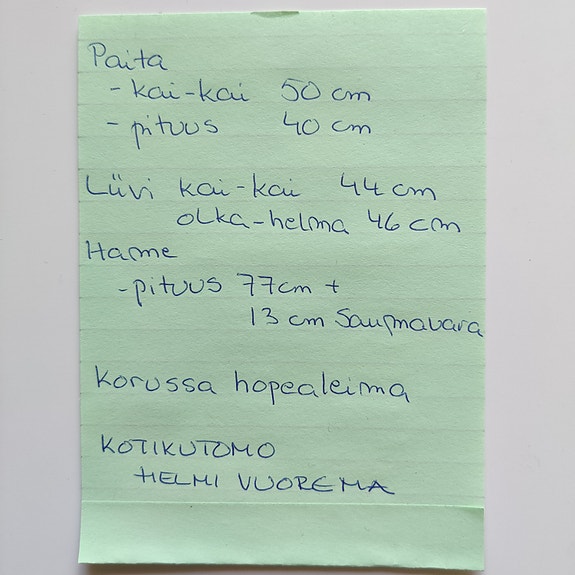 Paita
- kai-kai 50 cm
- pituus 40 cm
Liivi kai-kai 44 cm
olka-helma 46 cm
Hame
-pituus 77cm +
13 cm Saumavara
Korussa hopealeima
KOTIKUTOMO
HELMI VUOREMA